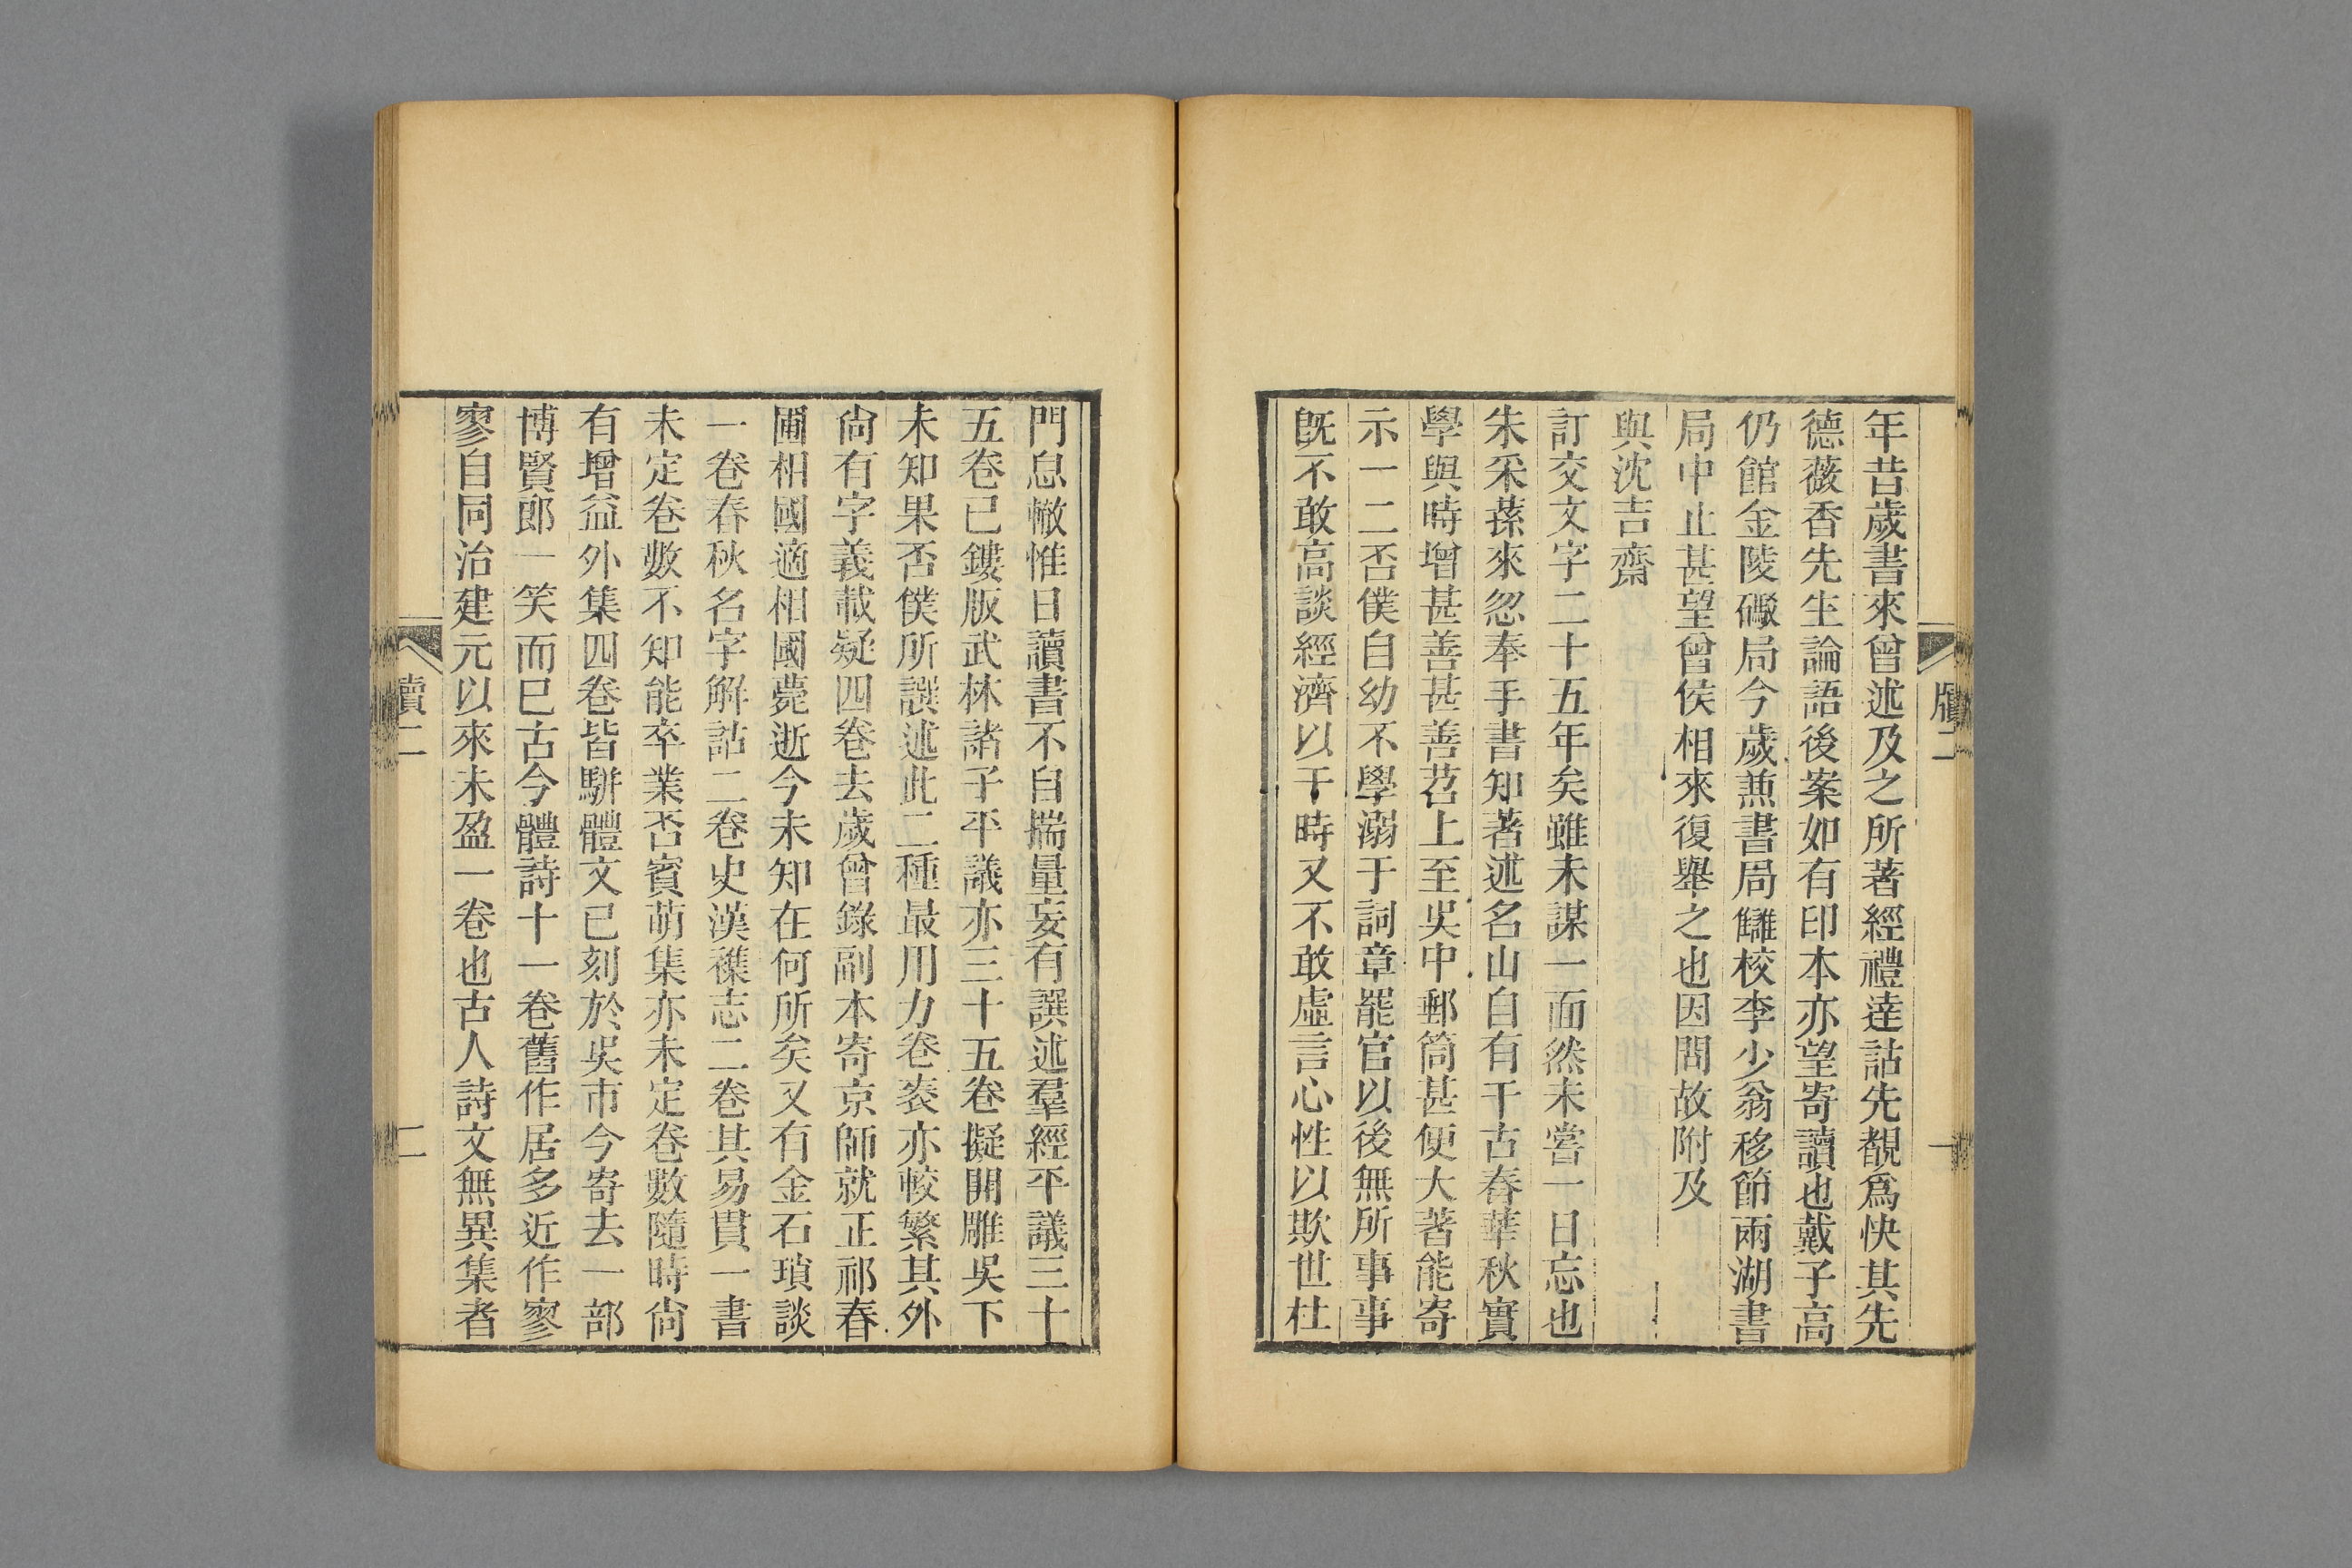 年昔歲書來曾述及之所著經禮逹詁先覩爲快其先
德薇香先生論語後案如有印本亦望寄讀也戴子高
仍館金陵礮局今歲蕉書局讎校李少翁移節兩湖書
局中止甚望曾侯相來復舉之也因問故附及
與沈吉齋
訂交文字二十五年矣雖未謀一面然未嘗一日忘也
朱采蓀來忽奉手書知著述名山自有千古春華秋實
學與時增甚善甚善苕上至吳中郵筒甚便大著能寄
示一二否僕自幼不學溺于詞章罷官以後無所事事
旣不敢高談經濟以干時又不敢虛言心性以欺世杜
門息轍惟日讀書不自揣量妄有譔述羣經平議三十
五卷已鏤版武林諸子平議亦三十五卷擬開雕吳下
未知果否僕所譔述此二種最用力卷袠亦較繁其外
尙有字義載疑四卷去歲曾錄副本寄京師就正祁春
圃相國適相國薨逝今未知在何所矣又有金石瑣談
一卷春秋名字解詁二卷史漢襍志二卷其易貫一書
未定卷數不知能卒業否賓萌集亦未定卷數隨時尙
有增益外集四卷皆駢體文已刻於吳市今寄去一部
博賢郎一笑而已古今體詩十一卷舊作居多近作寥
寥自同治建元以來未盈一卷也古人詩文無異集者
牘二
二